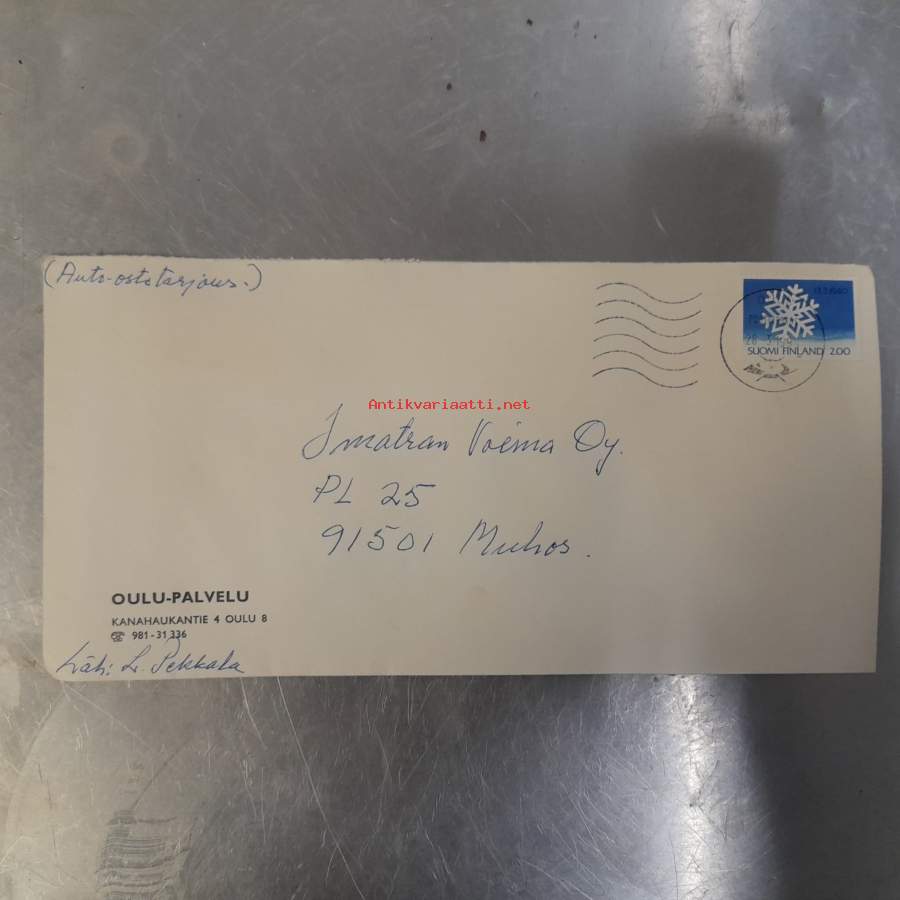 (Auto-ostotarjous.)
13.3.1940
SUOMI FINLAND 2.00
Antikvariaatti.net
Imatran Voima Oy.
PL 25
91501 Muhos.
OULU-PALVELU
KANAHAUKANTIE 4 OULU 8
☎ 981-31336
Läh: L. Pekkala